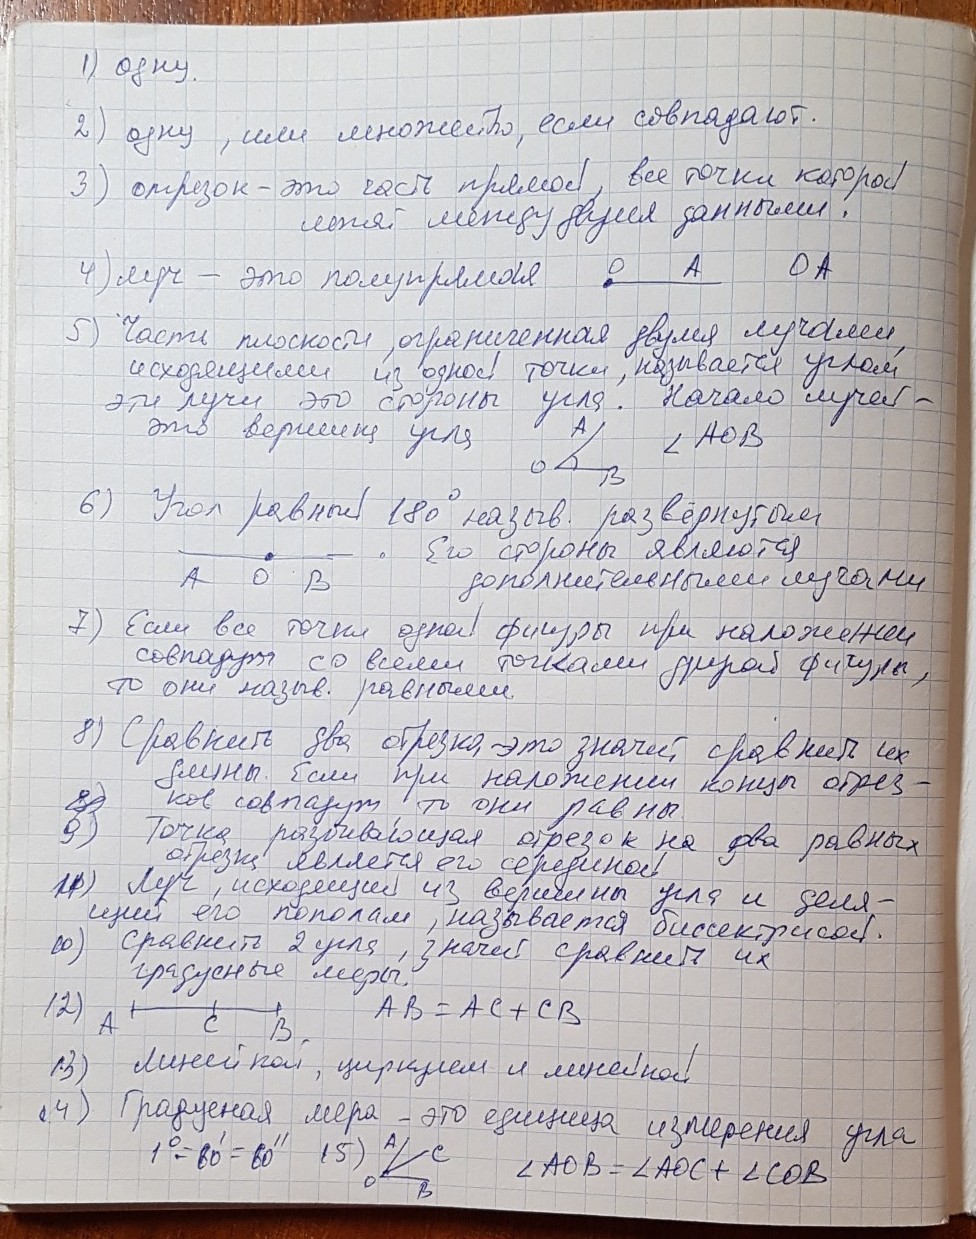 1) одну.
2) одну, или множество, если совпадают.
3) отрезок - это часть прямой, все точки которой
лежат между двумя данными.
4) луч - это полупрямая O A OA
5) Часть плоскости, ограниченная двумя лучами,
исходящими из одной точки, называется углом
эти лучи это стороны угла. Начало лучей -
это вершина угла A O B ∠AOB
6) Угол равный 180° назыв. развёрнутым
A O B . Его стороны являются
дополнительными лучами
7) Если все точки одной фигуры при наложении
совпадут со всеми точками другой фигуры,
то они назыв. равными.
8) Сравнить два отрезка - это значит сравнить их
длины. Если при наложении концы отрез-
ков совпадут то они равны
9) Точка разбивающая отрезок на два равных
отрезка является его серединой
11) Луч, исходящий из вершины угла и деля-
щий его пополам, называется биссектрисой.
10) Сравнить 2 угла, значит сравнить их
градусные меры.
12) A C B AB = AC + CB
13) Линейкой, циркулем и линейкой
14) Градусная мера - это единица измерения угла
1° = 60' = 60'' 15) A C O B ∠AOB = ∠AOC + ∠COB